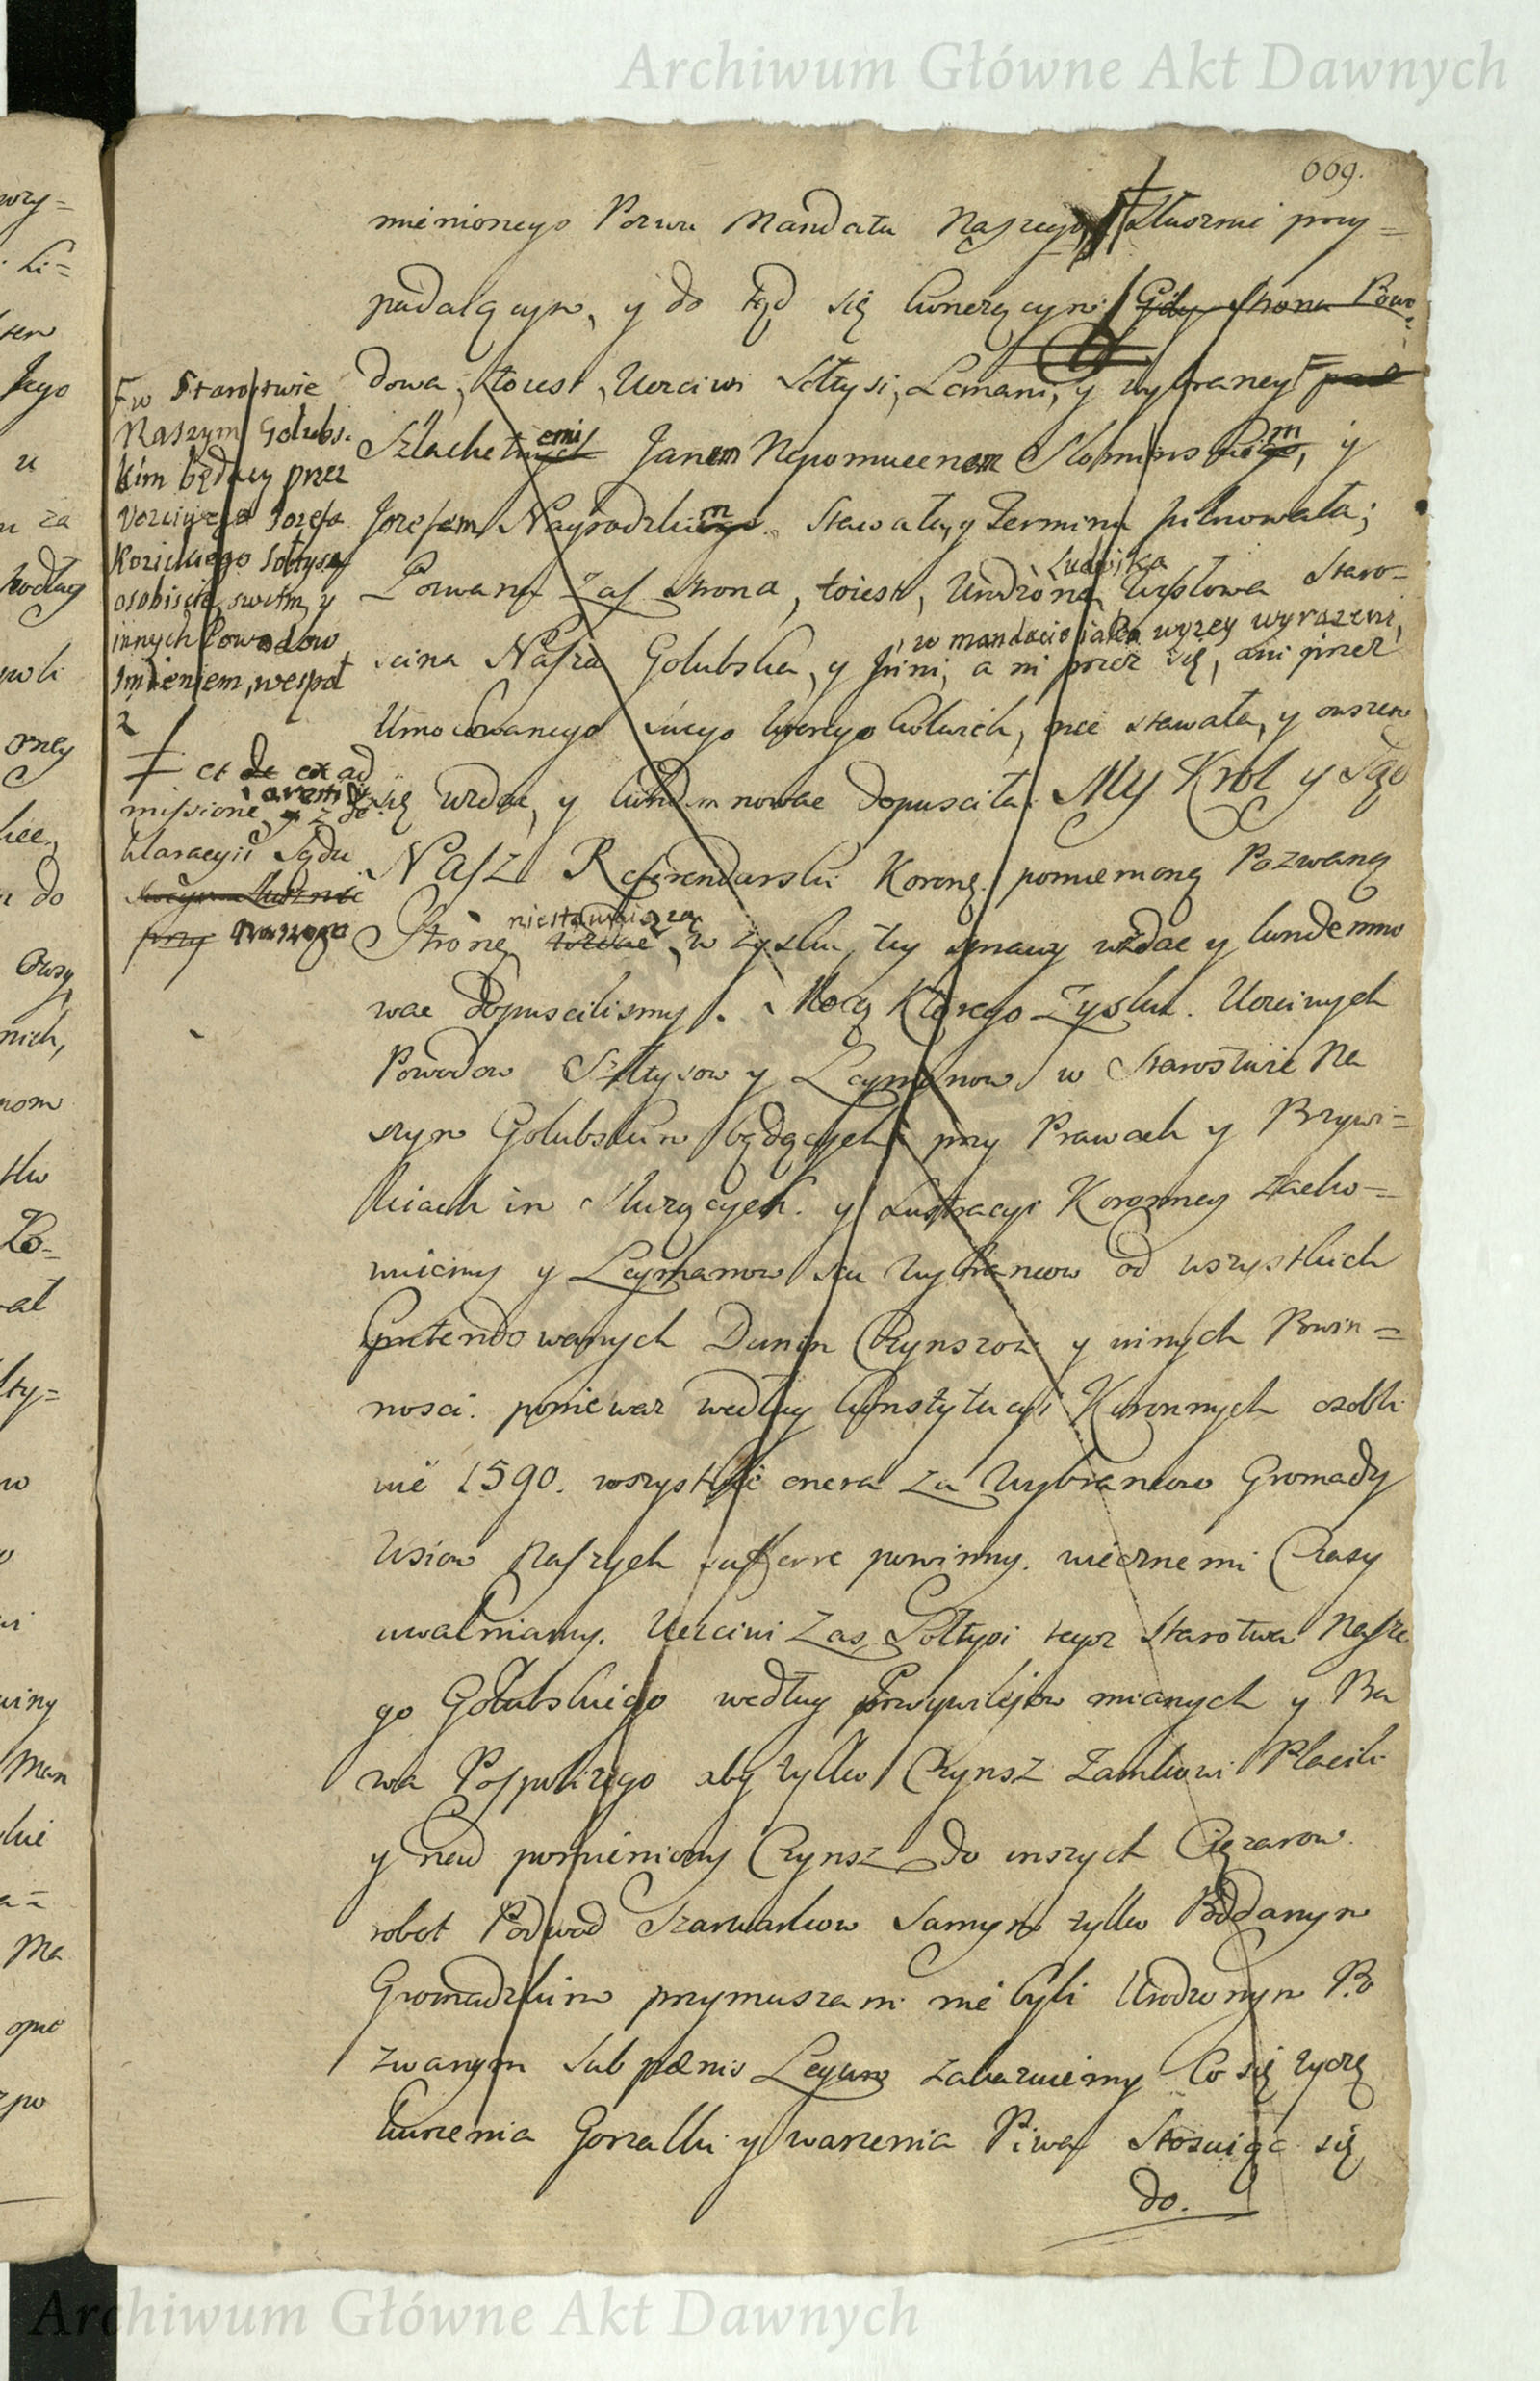 Archiwum Główne Akt Dawnych
669.
mienionego Pozwu Mandatu Naszego Słusznie przy=
padaiącym, y do tąd się kunerzącym Gdy Strona Powo=
dowa, toiest, Uczciwi Sołtysi, Lemani, y wybrancy
Szlachetnemi Janem Nepomucenem Słomins kim, y
Jozefem Nagrodzkim. Stawała, y Terminu pilnowała;
Ludwika
Pozwana Zaś strona, toiest, Urodzona Staro=
w mandacie iako wyzey wyrazeni,
scina Nasza Golubska, y Jnni, a ni przez się, ani przez
Umocowanego swego, nie stawała, y owszem
się wzdac, y kundemnowac dopusciła. My Krol y Sąd
Nasz Referendarski Koronę. pomienioną Pozwaną
niestawaiącą
Stronę wzdac w zysku tey sprawy wzdac y kundemno
wac dopuscilismy. Mocą Ktorego Zysku. Uczciwych
Powodow Sołtysow y Leymanow w Starostwie Na
szym Golubskim będących przy Prawach y Przywi=
leiach im słuzących. y Lustracyi Koronney zacho=
wuiemy y Leymanow seu Wybrancow od wszystkich
pretendowanych Danin Czynszow y innych Powin=
nosci. poniewaz według Konstytucyi Koronnych osobli
wie 1590. wszystkie onera za Wybrancow Gromady
Wsiow Naszych sufferre powinny. wiecznemi Czasy
uwalniamy. Uczciwi Zas Sołtysi tegoz Starotwa Nasze
go Golubskiego według Przywileiow mianych y Pra
wa Pospolitego aby tylko Czynsz Zamkowi Płacili
y nad pomieniony Czynsz do inszych Cięzarow
robot Podwod Szarwarkow Samym tylko Poddanym
Gromadzkim przymuszani nie byli Urodzonym Po
zwanym sub poenis Legum zakazuiemy Co się tycze
kurzenia Gorzałki y warzenia Piwa Stosuiąc się
do.
w Starostwie
Naszym Golubs.
kim będący przez
Uczciwego Jozefa
Kozickiego Sołtysa
osobiscie, swoim, y
innych Powodow
Jmieniem, wespoł
z
et de ex ad
missione, y z de
klaracyi Sądu
przy Naszego
Archiwum Główne Akt Dawnych